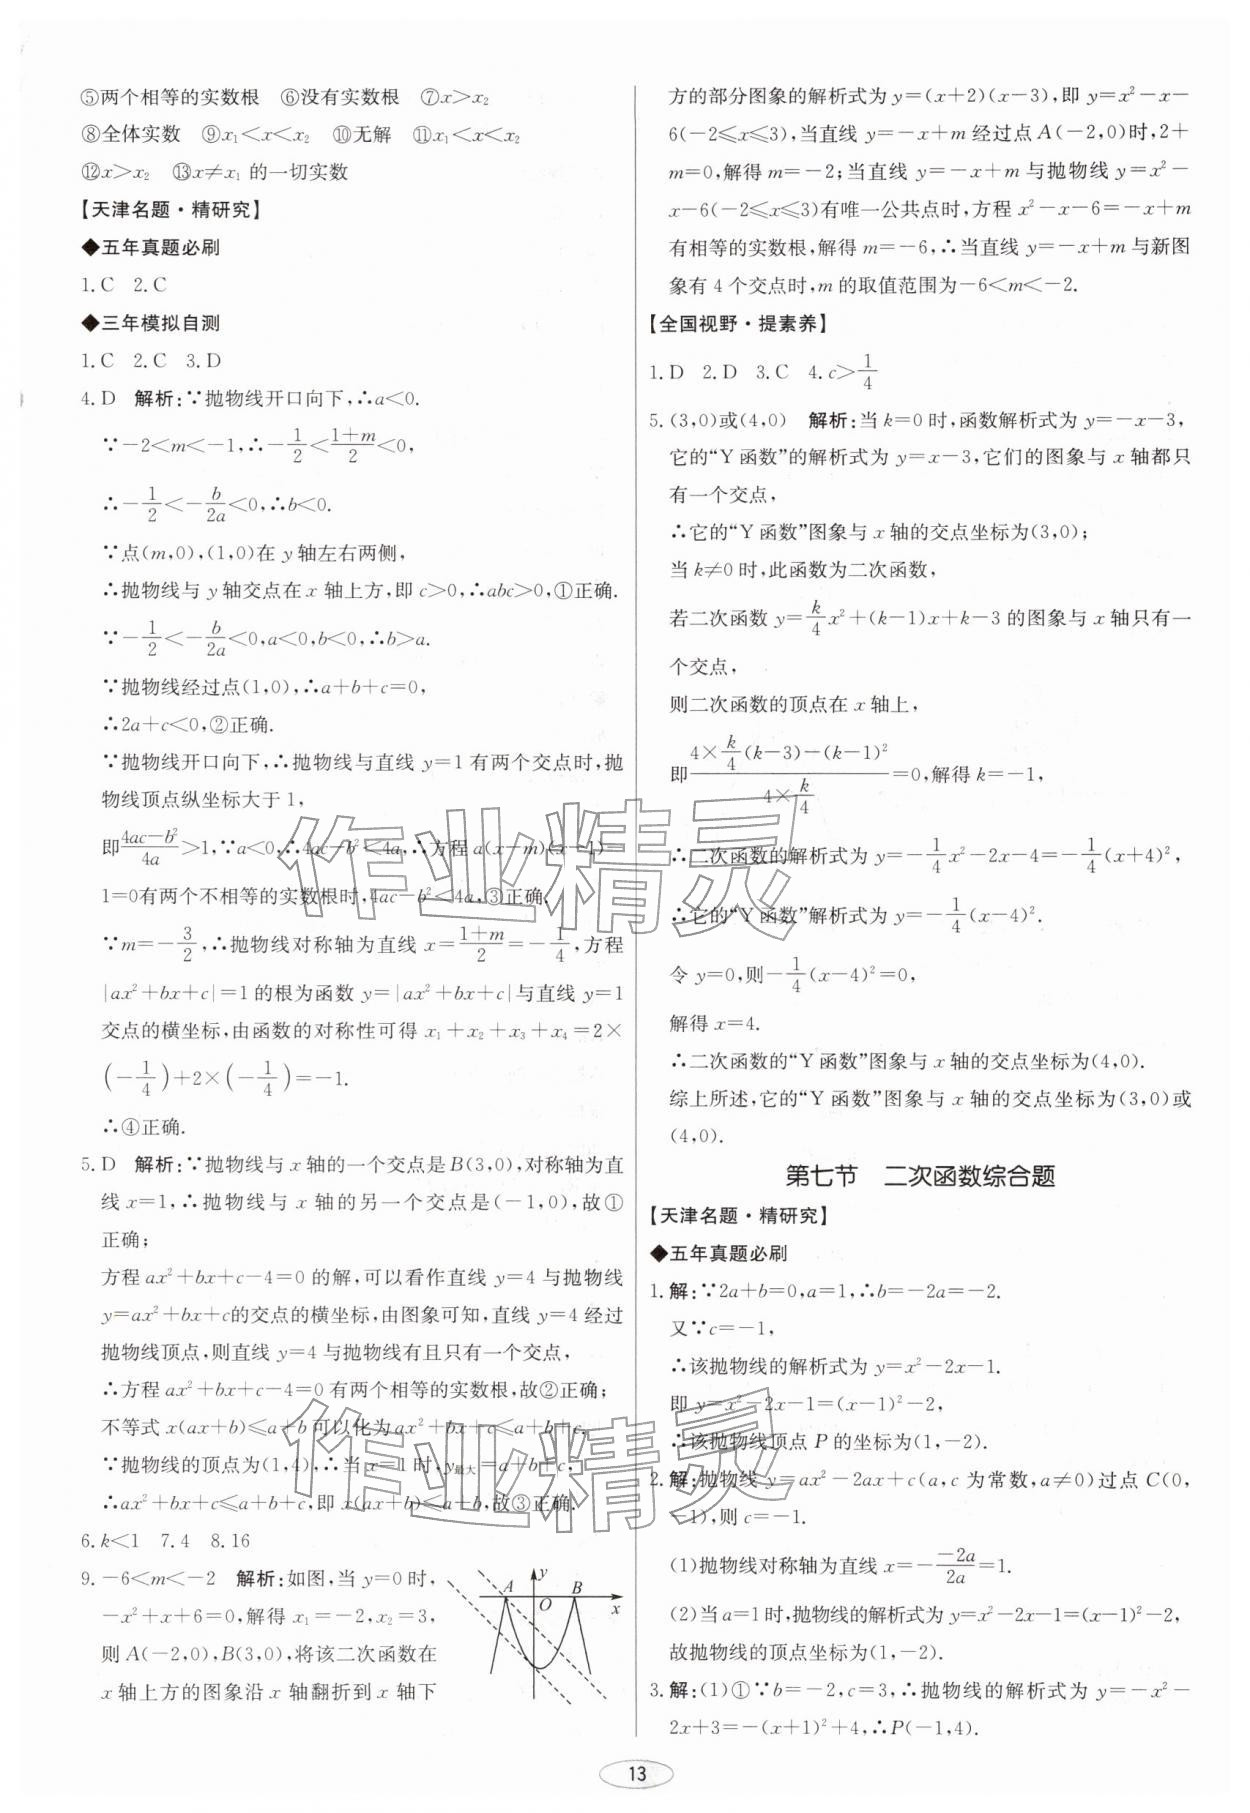 ⑤两个相等的实数根 ⑥没有实数根 ⑦x>x₂
⑧全体实数 ⑨x₁<x<x₂ ⑩无解 ⑪x₁<x<x₂
⑫x>x₂ ⑬x≠x₁ 的一切实数
【天津名题·精研究】
◆五年真题必刷
1.C 2.C
◆三年模拟自测
1.C 2.C 3.D
4.D 解析:∵抛物线开口向下,∴a<0.
∵-2<m<-1,∴-1/2<(1+m)/2<0,
∴-1/2<-b/2a<0,∴b<0.
∵点(m,0),(1,0)在 y 轴左右两侧,
∴抛物线与 y 轴交点在 x 轴上方,即 c>0,∴abc>0,①正确.
∵-1/2<-b/2a<0,a<0,b<0,∴b>a.
∵抛物线经过点(1,0),∴a+b+c=0,
∴2a+c<0,②正确.
∵抛物线开口向下,∴抛物线与直线 y=1 有两个交点时,抛
物线顶点纵坐标大于 1,
即(4ac-b²)/4a>1,∵a<0,∴4ac-b²<4a,∴方程 a(x-m)(x-1)-
1=0有两个不相等的实数根时,4ac-b²<4a,③正确.
∵m=-3/2,∴抛物线对称轴为直线 x=(1+m)/2=-1/4,方程
|ax²+bx+c|=1 的根为函数 y=|ax²+bx+c|与直线 y=1
交点的横坐标,由函数的对称性可得 x₁+x₂+x₃+x₄=2×
(-1/4)+2×(-1/4)=-1.
∴④正确.
5.D 解析:∵抛物线与 x 轴的一个交点是 B(3,0),对称轴为直
线 x=1,∴抛物线与 x 轴的另一个交点是(-1,0),故①
正确;
方程 ax²+bx+c-4=0 的解,可以看作直线 y=4 与抛物线
y=ax²+bx+c的交点的横坐标,由图象可知,直线 y=4 经过
抛物线顶点,则直线 y=4 与抛物线有且只有一个交点,
∴方程 ax²+bx+c-4=0 有两个相等的实数根,故②正确;
不等式 x(ax+b)≤a+b 可以化为 ax²+bx+c≤a+b+c.
∵抛物线的顶点为(1,4),∴当 x=1 时,y最大=a+b+c,
∴ax²+bx+c≤a+b+c,即 x(ax+b)≤a+b,故③正确.
6.k<1 7.4 8.16
9.-6<m<-2 解析:如图,当 y=0 时,
-x²+x+6=0,解得 x₁=-2,x₂=3,
则 A(-2,0),B(3,0),将该二次函数在
x 轴上方的图象沿 x 轴翻折到 x 轴下
A B O x y
方的部分图象的解析式为 y=(x+2)(x-3),即 y=x²-x-
6(-2≤x≤3),当直线 y=-x+m 经过点 A(-2,0)时,2+
m=0,解得 m=-2;当直线 y=-x+m 与抛物线 y=x²-
x-6(-2≤x≤3)有唯一公共点时,方程 x²-x-6=-x+m
有相等的实数根,解得 m=-6,∴当直线 y=-x+m 与新图
象有 4 个交点时,m 的取值范围为-6<m<-2.
【全国视野·提素养】
1.D 2.D 3.C 4.c>1/4
5.(3,0)或(4,0) 解析:当 k=0 时,函数解析式为 y=-x-3,
它的“Y 函数”的解析式为 y=x-3,它们的图象与 x 轴都只
有一个交点,
∴它的“Y 函数”图象与 x 轴的交点坐标为(3,0);
当 k≠0 时,此函数为二次函数,
若二次函数 y=k/4 x²+(k-1)x+k-3 的图象与 x 轴只有一
个交点,
则二次函数的顶点在 x 轴上,
即(4×k/4(k-3)-(k-1)²)/(4×k/4)=0,解得 k=-1,
∴二次函数的解析式为 y=-1/4x²-2x-4=-1/4(x+4)²,
∴它的“Y 函数”解析式为 y=-1/4(x-4)².
令 y=0,则-1/4(x-4)²=0,
解得 x=4.
∴二次函数的“Y 函数”图象与 x 轴的交点坐标为(4,0).
综上所述,它的“Y 函数”图象与 x 轴的交点坐标为(3,0)或
(4,0).
第七节 二次函数综合题
【天津名题·精研究】
◆五年真题必刷
1.解:∵2a+b=0,a=1,∴b=-2a=-2.
又∵c=-1,
∴该抛物线的解析式为 y=x²-2x-1.
即 y=x²-2x-1=(x-1)²-2,
∴该抛物线顶点 P 的坐标为(1,-2).
2.解:抛物线 y=ax²-2ax+c(a,c 为常数,a≠0)过点 C(0,
-1),则 c=-1.
(1)抛物线对称轴为直线 x=-(-2a)/2a=1.
(2)当 a=1 时,抛物线的解析式为 y=x²-2x-1=(x-1)²-2,
故抛物线的顶点坐标为(1,-2).
3.解:(1)①∵b=-2,c=3,∴抛物线的解析式为 y=-x²-
2x+3=-(x+1)²+4,∴P(-1,4).
13
作业精灵
作业精灵